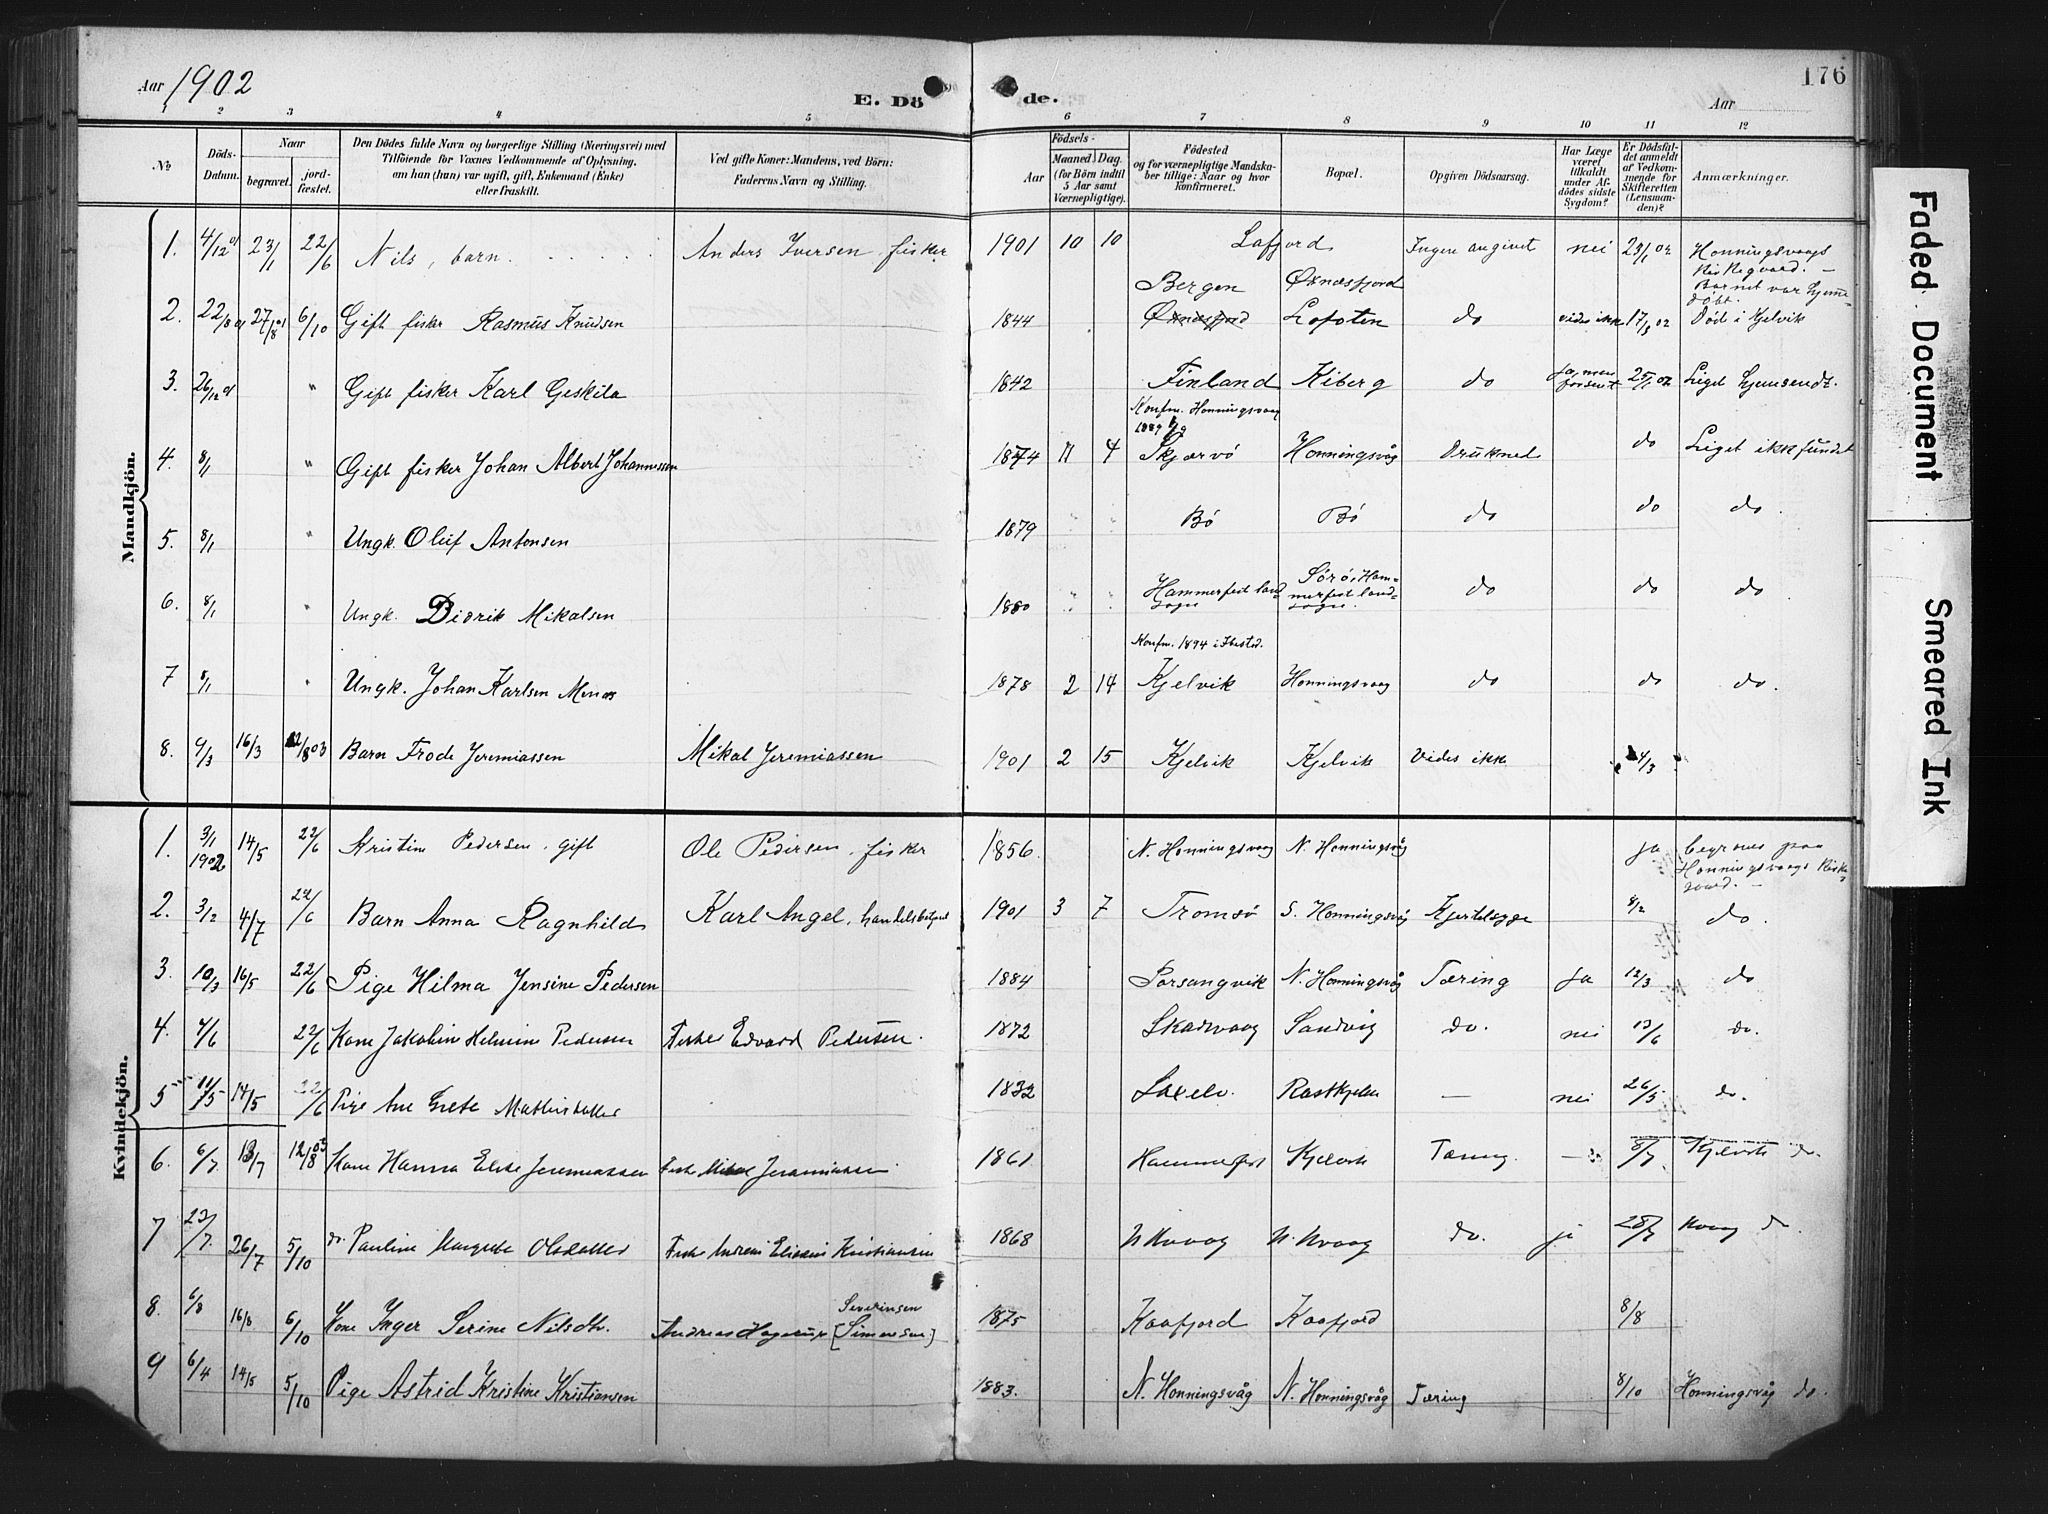 Aar 1902
E. Dö de.
176
Aar
1 2 3 4 5 6 7 8 9 10 11 12
№
Döds-Datum.
Naar
begravet.
jord-fæstet.
Den Dödes fulde Navn og borgerlige Stilling (Næringsvei) med
Tilföiende for Voxnes Vedkommende af Oplysning,
om han (hun) var ugift, gift, Enkemand (Enke)
eller fraskilt.
Ved gifte Koner: Mandens, ved Börn:
Faderens Navn og Stilling.
Födsels-
Aar
Maaned Dag.
(for Börn indtil
5 Aar samt
Værnepligtige).
Födested
og for værnepligtige Mandska-
ber tillige: Naar og hvor
konfirmeret.
Bopæl.
Opgiven Dödsaarsag.
Har Læge
været
tilkaldt
under Af-
dödes sidste
Sygdom?
Er Dödsfal-
det anmeldt
af Vedkom-
mende for
Skifteretten
(Lensman-
den)?
Anmærkninger.
Mandkjön.
1. 4/12 01 23/1 22/6 Nils, barn Anders Iversen, fisker 1901 10 10 Lafjord Ingen angivet nei 23/1 02 Honningsvaags Kirkegaard. – Barnet var hjemmedøbt.
2. 22/8 01 27/8 01 6/10 Gift fisker Rasmus Knudsen 1844 Bergen Øxnæsfjord Øxnæsfjord Lofoten do vides ikke 17/3 02 Død i Kjelvik
3. 26/12 01 " Gift fisker Karl Geskila 1842 Finland Kiberg do Ja, men forsent 25/1 02 Liget hjemsendt.
4. 8/1 " Gift fisker Johan Albert Johannessen 1874 11 4 Konfm. Honningsvaag 1889 Skjærvö Honningsvåg Drukned do Liget ikke fundet
5. 8/1 " Ungk. Oluf Antonsen 1879 " " Bö Bö do do do.
6. 8/1 " Ungk. Didrik Mikalsen 1880 " " Hammerfest landsogn Sørø, Hammerfest landsogn. do do do
7 8/1 " Ungk. Johan Karlsen Monas 1878 2 14 Konfm. 1894 i Ibestad. Kjelvik Honningsvaag do do do.
8. 9/3 16/3 12/8 03 Barn Frode Jeremiassen Mikal Jeremiassen 1901 2 15 Kjelvik Kjelvik Vides ikke 4/3
Kvindekjön.
1. 3/1 1902 14/5 22/6 Kristine Pedersen, gift Ole Pedersen, fisker 1856. N. Honningsvaag N. Honningsvåg ja begraves paa Honningsvaags Kirkegaard. –
2. 3/2 4/7 22/6 Barn Anna Ragnhild Karl Angel, handelsbetjent 1901 3 7 Tromsö S. Honningsvåg Kjertelsyge 8/2 do.
3. 10/3 16/5 22/6 Pige Hilma Jensine Pedersen 1884 Porsangvik N. Honningsvåg Tæring Ja 12/3 do
4. 4/6 22/6 Kone Jakobine Helmine Pedersen Fisker Edvard Pedersen. 1872 Skarvaag Sandvig do. nei 13/6 do.
5 11/5 14/5 22/6 Pige Ane Grete Mathisdatter 1832 Laxelv. – nei 26/5 do.
6. 6/7 13/7 12/8 03 Kone Hanna Elise Jeremiassen Fisker Mikal Jeremiassen. 1861 Hammerfest Kjelvik Tæring. 8/7 Kjelvik do.
7 23/7. 26/7 5/10 do. Pauline Margrete Olsdatter Kristiansen 1868 N Hvaag N. Hvaag do. ja 28/7 Hvaag do.
8. 6/8 16/8 6/10 Kone Inger Serine Nilsdtr. Andreas Hagerup Severinsen [Simonsen] 1875 Kaafjord Kaafjord 8/8
9 6/4 14/5 5/10 Pige Astrid Kristine Kristiansen 1883. N. Honningsvåg N. Honningsvåg Tæring 8/10 Honningsvåg do.
Faded Document
Smeared Ink